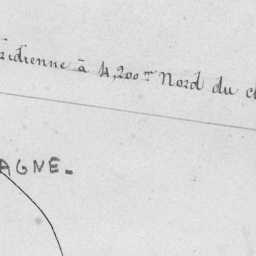 ridienne à 4,200m Nord du c
AGNE.